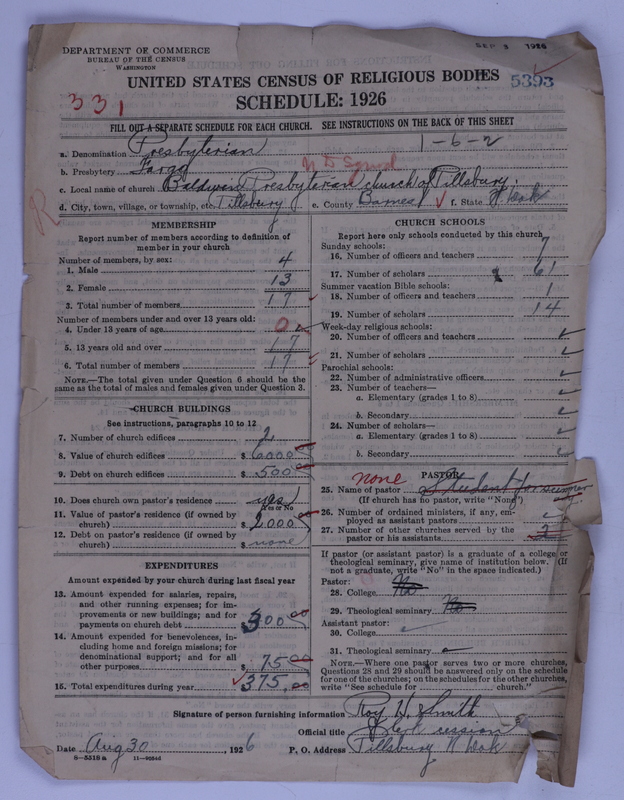 DEPARTMENT OF COMMERCE
BUREAU OF THE CENSUS
WASHINGTON
SEP 3 1926
UNITED STATES CENSUS OF RELIGIOUS BODIES
5393
331
SCHEDULE: 1926
FILL OUT A SEPARATE SCHEDULE FOR EACH CHURCH. SEE INSTRUCTIONS ON THE BACK OF THIS SHEET
1-6-2
a. Denomination Presbyterian
b. Presbytery Fargo N D Synod
c. Local name of church Baldwin Presbyterian church of Pillsbury,
d. City, town, village, or township, etc. Pillsbury e. County Barnes f. State N. Dak
MEMBERSHIP
Report number of members according to definition of
member in your church
Number of members, by sex:
1. Male 4
2. Female 13
3. Total number of members 17
Number of members under and over 13 years old:
4. Under 13 years of age 0
5. 13 years old and over 17
6. Total number of members 17
NOTE.—The total given under Question 6 should be the
same as the total of males and females given under Question 3.
CHURCH BUILDINGS
See instructions, paragraphs 10 to 12
7. Number of church edifices 2
8. Value of church edifices $ 6000.00
9. Debt on church edifices $ 500.00
10. Does church own pastor's residence yes
Yes or No
11. Value of pastor's residence (if owned by
church) $ 2000.00
12. Debt on pastor's residence (if owned by
church) $ none
EXPENDITURES
Amount expended by your church during last fiscal year
13. Amount expended for salaries, repairs,
and other running expenses; for im-
provements or new buildings; and for
payments on church debt $ 300.00
14. Amount expended for benevolences, in-
cluding home and foreign missions; for
denominational support; and for all
other purposes $ 75.00
15. Total expenditures during year $ 375.00
CHURCH SCHOOLS
Report here only schools conducted by this church
Sunday schools:
16. Number of officers and teachers 7
17. Number of scholars 61
Summer vacation Bible schools:
18. Number of officers and teachers 1
19. Number of scholars 14
Week-day religious schools:
20. Number of officers and teachers
21. Number of scholars
Parochial schools:
22. Number of administrative officers
23. Number of teachers—
a. Elementary (grades 1 to 8)
b. Secondary
24. Number of scholars—
a. Elementary (grades 1 to 8)
b. Secondary
PASTOR
none
25. Name of pastor Student for summer
(If church has no pastor, write "None")
26. Number of ordained ministers, if any, em-
ployed as assistant pastors
27. Number of other churches served by the
pastor or his assistants 2
If pastor (or assistant pastor) is a graduate of a college or
theological seminary, give name of institution below. (If
not a graduate, write "No" in the space indicated.)
Pastor:
28. College No
29. Theological seminary No
Assistant pastor:
30. College
31. Theological seminary
NOTE.—Where one pastor serves two or more churches,
Questions 28 and 29 should be answered only on the schedule
for one of the churches; on the schedules for the other churches,
write "See schedule for church."
Signature of person furnishing information Roy H. Smith
Official title Clerk session
Date Aug 30, 1926 P. O. Address Pillsbury N Dak
8-5318a 11-9084d